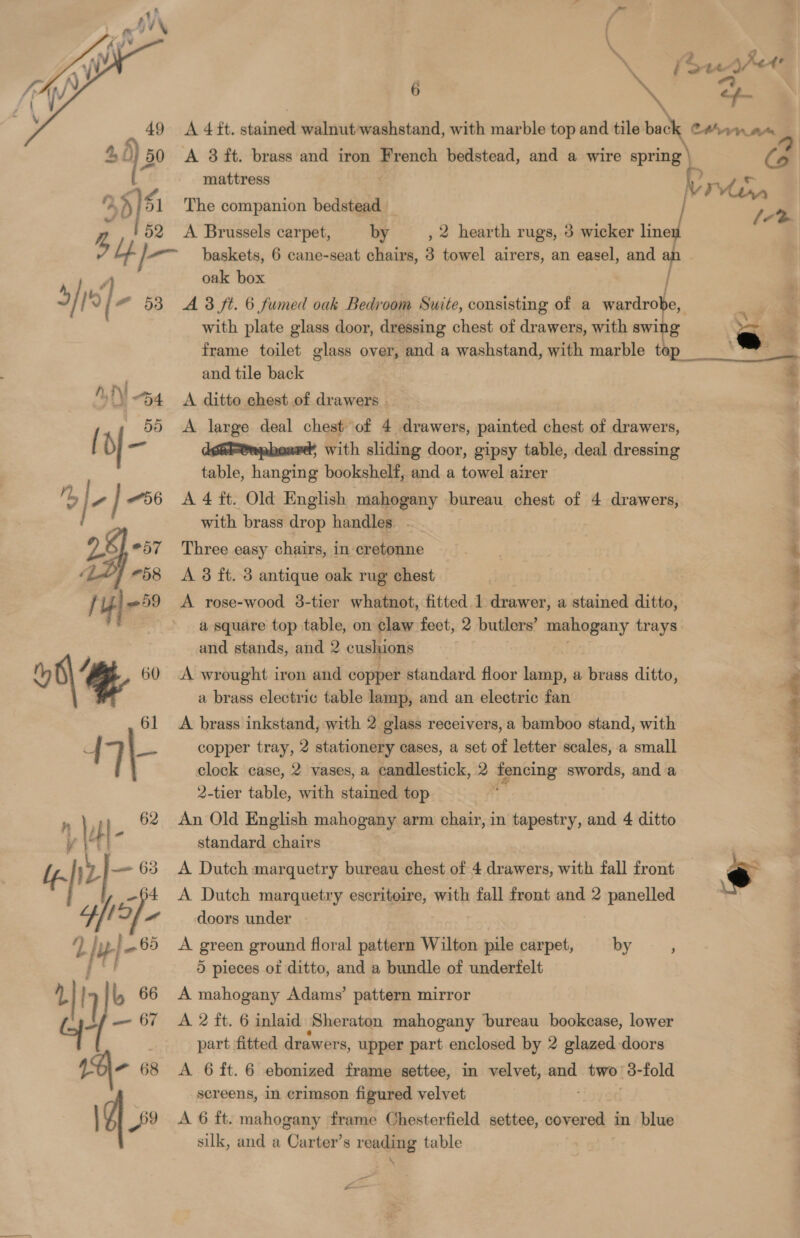 6
49 A 4 ft. stained walnut washstand, with marble top and tile back
50 A 3 ft. brass and iron French bedstead, and a wire spring
mattress
51 The companion bedstead
52 A Brussels carpet, by , 2 hearth rugs, 3 wicker linen
baskets, 6 cane-seat chairs, 3 towel airers, an easel, and an
oak box
53 A 3 ft. 6 fumed oak Bedroom Suite, consisting of a wardrobe,
with plate glass door, dressing chest of drawers, with swing
frame toilet glass over, and a washstand, with marble top
and tile back
54 A ditto chest of drawers
55 A large deal chest of 4 drawers, painted chest of drawers,
with sliding door, gipsy table, deal dressing
table, hanging bookshelf, and a towel airer
56 A 4 ft. Old English mahogany bureau chest of 4 drawers,
with brass drop handles
57 Three easy chairs, in cretonne
58 A 3 ft. 3 antique oak rug chest
59 A rose-wood 3-tier whatnot, fitted 1 drawer, a stained ditto,
a square top table, on claw feet, 2 butlers' mahogany trays
and stands, and 2 cushions
60 A wrought iron and copper standard floor lamp, a brass ditto,
a brass electric table lamp, and an electric fan
61 A brass inkstand, with 2 glass receivers, a bamboo stand, with
copper tray, 2 stationery cases, a set of letter scales, a small
clock case, 2 vases, a candlestick, 2 fencing swords, and a
2-tier table, with stained top
62 An Old English mahogany arm chair, in tapestry, and 4 ditto
standard chairs
63 A Dutch marquetry bureau chest of 4 drawers, with fall front
64 A Dutch marquetry escritoire, with fall front and 2 panelled
doors under
65 A green ground floral pattern Wilton pile carpet, by ,
5 pieces of ditto, and a bundle of underfelt
66 A mahogany Adams' pattern mirror
67 A 2 ft. 6 inlaid Sheraton mahogany bureau bookcase, lower
part fitted drawers, upper part enclosed by 2 glazed doors
68 A 6 ft. 6 ebonized frame settee, in velvet, and two 3-fold
screens, in crimson figured velvet
69 A 6 ft. mahogany frame Chesterfield settee, covered in blue
silk, and a Carter's reading table